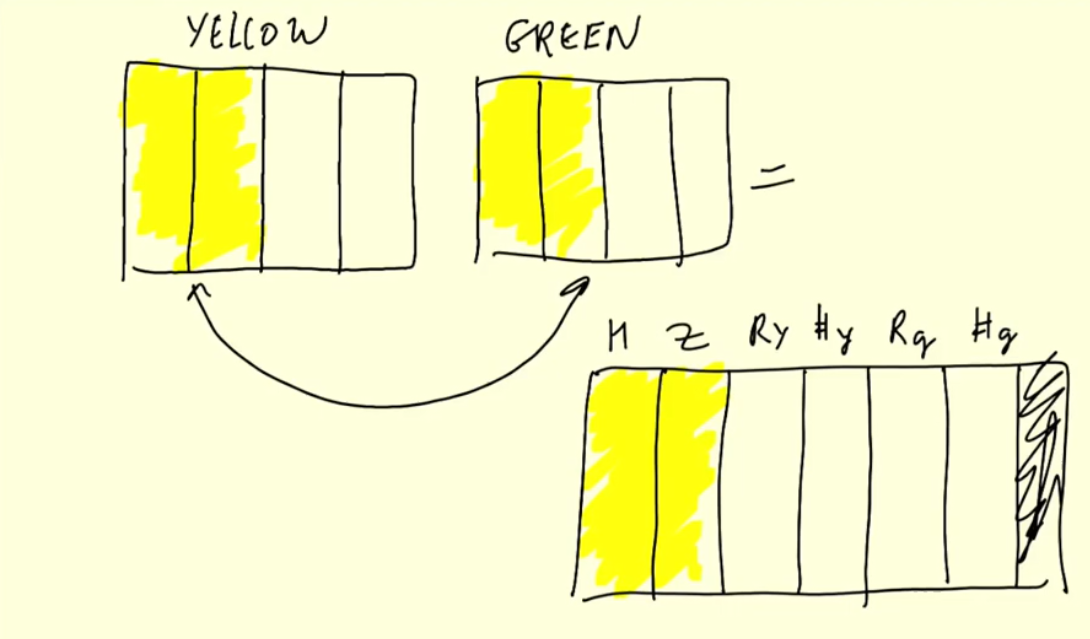 YELLOW GREEN
=
H Z Ry Hy Rg Hg